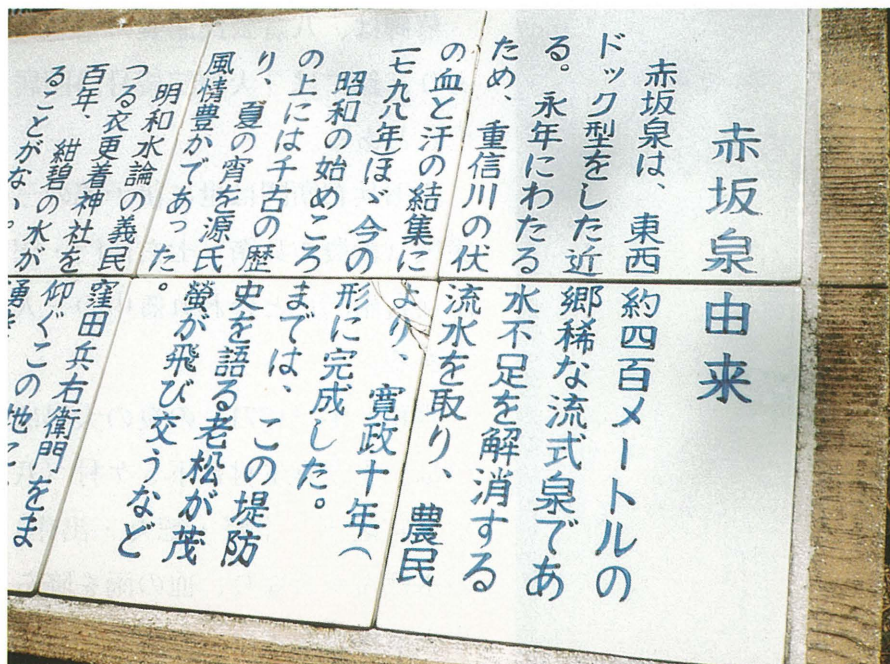 赤坂泉由来
赤坂泉は、東西約四百メートルの
ドック型をした近郷稀な流式泉であ
る。永年にわたる水不足を解消する
ため、重信川の伏流水を取り、農民
の血と汗の結集により、寛政十年(
一七九八年)ほゞ今の形に完成した。
昭和の始めころまでは、この堤防
の上には千古の歴史を語る老松が茂
り、夏の宵を源氏螢が飛び交うなど
風情豊かであった。
明和水論の義民窪田兵右衛門をま
つる衣更着神社を仰ぐこの地に
百年、紺碧の水が湧き
ることがない。